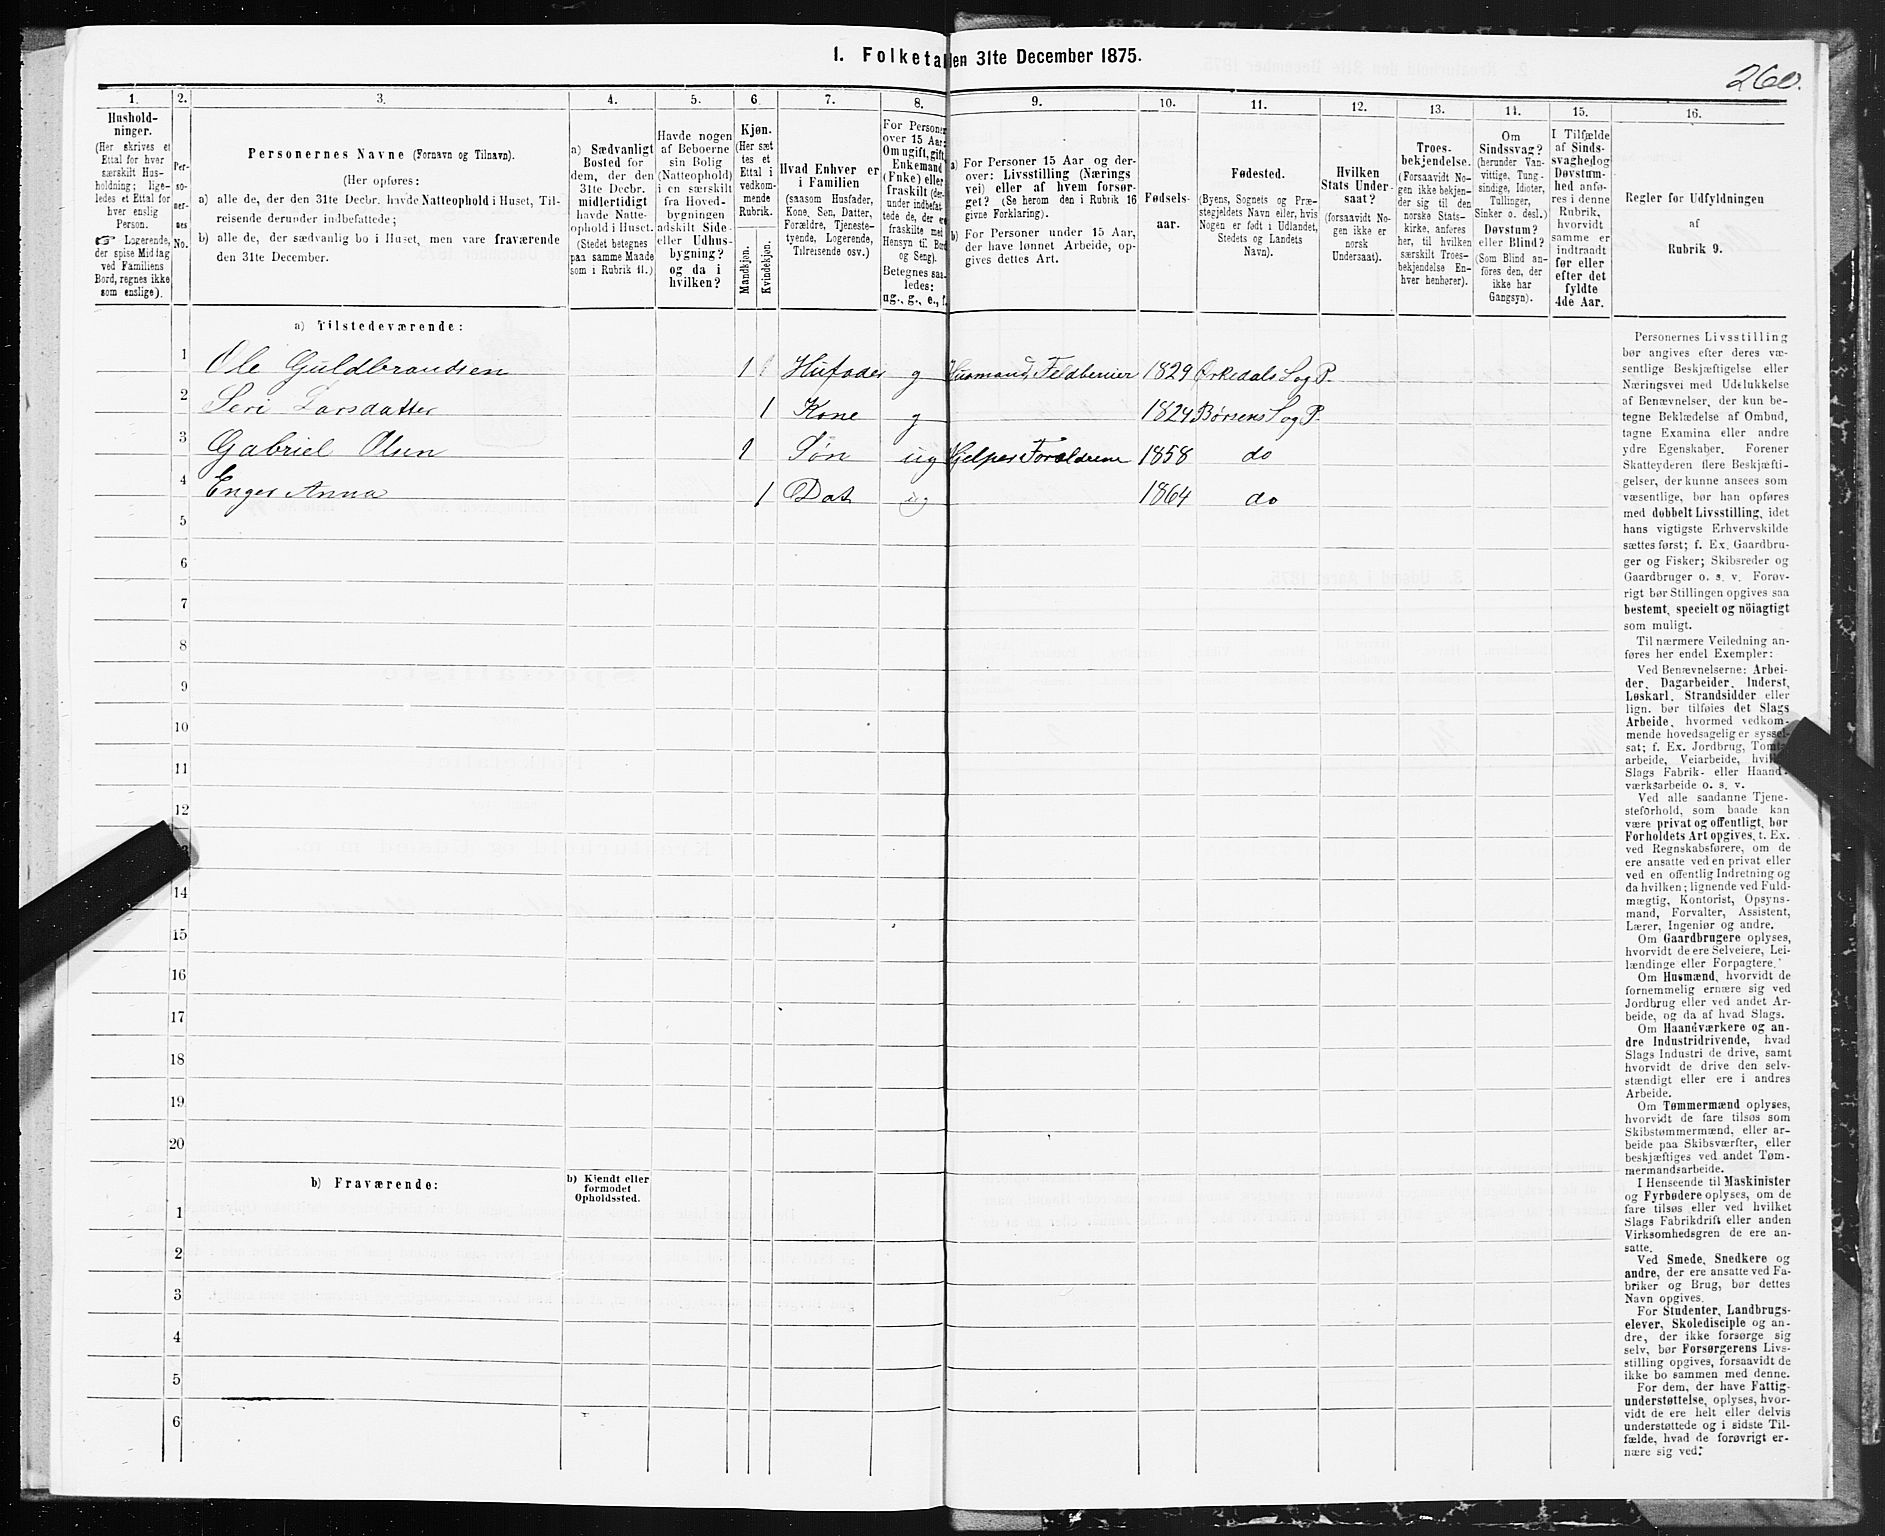 1. Folketal den 31te December 1875.
260.
1.
2.
3.
4.
5.
6.
7.
8.
9.
10.
11.
12.
13.
14.
15.
16.
Hushold-
ninger.
(Her skrives et
Ettal for hver
særskilt Hus-
holdning; lige-
ledes et Ettal for
hver enslig
Person.
☞ Logerende,
der spise Middag
ved Familiens
Bord, regnes ikke
som enslige).
Per-
so-
ner-
nes
No.
Personernes Navne (Fornavn og Tilnavn).
(Her opføres:
a) alle de, der den 31te Decbr. havde Natteophold i Huset, Til-
reisende derunder indbefattede;
b) alle de, der sædvanlig bo i Huset, men vare fraværende
den 31te December.
a) Sædvanligt
Bosted for
dem, der den
31te Decbr.
midlertidigt
havde Natte-
ophold i Huset.
(Stedet betegnes
paa samme Maade
som i Rubrik 11.)
Havde nogen
af Beboerne
sin Bolig
(Natteophold)
i en særskilt
fra Hoved-
bygningen
adskilt Side-
eller Udhus-
bygning?
og da i
hvilken?
Kjøn.
(Her sæt
tes et
Ettal i
vedkom-
mende
Rubrik.
Mandkjøn.
Kvindekjøn.
Hvad Enhver er
i Familien
(saasom Husfader,
Kone, Søn, Datter,
Forældre, Tjeneste-
tyende, Logerende,
Tilreisende osv.)
For Personer
over 15 Aar:
Om ugift, gift,
Enkemand
(Enke) eller
fraskilt (der-
under indbefat-
tede de, der er
fraskilte met
Hensyn til Bord
og Seng).
Betegnes saa-
ledes:
ug., g., e., f.
a) For Personer 15 Aar og der-
over: Livsstilling (Nærings
vei) eller af hvem forsør-
get? (Se herom den i Rubrik 16
givne Forklaring).
b) For Personer under 15 Aar,
der have lønnet Arbeide, op-
gives dettes Art.
Fødsels-
aar.
Fødested.
(Byens, Sognets og Præ-
stegjeldets Navn eller, hvis
Nogen er født i Udlandet,
Stedets og Landets
Navn).
Hvilken
Stats Under-
saat?
(forsaavidt No-
gen ikke er
norsk
Undersaat).
Troes-
bekjendelse.
(Forsaavidt No-
gen ikke bekjen-
der sig til den
norske Stats-
kirke, anføres
her, til hvilken
særskilt Troes-
bekjendelse En-
hver henhører).
Om
Sindssvag?
(herunder Van-
vittige, Idioter,
Tullinger,
Sinker o. desl.)
Døvstum?
eller Blind?
(Som Blind an-
føres den, der
ikke har
Gangsyn).
I Tilfælde
af Sinds-
svaghed og
Døvstum-
hed anfø-
res i denne
Rubrik,
hvorvidt
samme er
indtraadt
før eller
efter det
fyldte
4de Aar.
Regler for Udfyldningen
af
Rubrik 9.
a) Tilstedeværende:
1 Ole Guldbrandsen 1 Husfader g Husmand, Feldbereder 1829 Orkedals S og P.
2 Seri Larsdatter 1 Kone g 1824 Børsens S og P.
3 Gabriel Olsen 1 Søn ug Hjelper Forældrene 1858 do
4 Enger Anna 1 Dat ug 1864 do
5
6
7
8
9
10
11
12
14
15
16
17
18
19
20
b) Fraværende:
b) Kjendt eller
formodet
Opholdssted.
1
2
3
4
5
6
Personernes Livsstilling
bør angives efter deres væ-
sentlige Beskjæftigelse eller
Næringsvei med Udelukkelse
af Benævnelser, der kun be-
tegne Beklædelse af Ombud,
tagne Examina eller andre
ydre Egenskaber. Forener
Skatteyderen flere Beskjæfti-
gelser, der kunne ansees som
væsentlige, bør han opføres
med dobbelt Livsstilling, idet
hans vigtigste Erhvervskilde
sættes først; f. Ex. Gaardbru-
ger og Fisker; Skibsreder og
Gaardbruger o. s. v. Forøv-
rigt bør Stillingen opgives saa
bestemt, specielt og nöiagtigt
som muligt.
Til nærmere Veiledning an-
føres her endel Exempler:
Ved Benævnelserne: Arbei-
der, Dagarbeider, Inderst,
Løskarl, Strandsidder eller
lign. bør tilføies det Slags
Arbeide, hvormed vedkom-
mende hovedsagelig er syssel-
sat; f. Ex. Jordbrug, Tomte-
arbeide, Veiarbeide, hvilket
Slags Fabrik- eller Haand-
værksarbeide o. s. v.
Ved alle saadanne Tjene-
steforhold, som baade kan
være privat og offentligt, bør
Forholdets Art opgives, t. Ex.
ved Regnskabsførere, om de
ere ansatte ved en privat eller
ved en offentlig Indretning og
da hvilken; lignende ved Fuld-
mægtig, Kontorist, Opsyns-
mand, Forvalter, Assistent,
Lærer, Ingeniør og andre.
Om Gaardbrugere oplyses,
hvorvidt de ere Selveiere, Lei-
lændinge eller Forpagtere.
Om Husmænd, hvorvidt de
fornemmelig ernære sig ved
Jordbrug eller ved andet Ar-
beide, og da af hvad Slags.
Om Haandværkere og an-
dre Industridrivende, hvad
Slags Industri de drive, samt
hvorvidt de drive den selv-
stændigt eller ere i andres
Arbeide.
Om Tømmermænd oplyses,
hvorvidt de fare tilsøs som
Skibstømmermænd, eller ar-
beide paa Skibsværfter, eller
beskjæftiges ved andet Tøm-
mermandsarbeide.
I Henseende til Maskinister
og Fyrbødere oplyses, om de
fare tilsøs eller ved hvilket
Slags Fabrikdrift eller anden
Virksomhedsgren de ere an-
satte.
Ved Smede, Snedkere og
andre, der ere ansatte ved Fa-
briker og Brug, bør dettes
Navn opgives.
For Studenter, Landbrugs-
elever, Skoledisciple og an-
dre, der ikke forsørge sig
selv, bør Forsørgerens Livs-
stilling opgives, forsaavidt de
ikke bo sammen med denne.
For dem, der have Fattig-
understøttelse, oplyses, hvor-
vidt de ere helt eller delvis
understøttede og i sidste Til-
fælde, hvad de forøvrigt er-
nære sig ved.